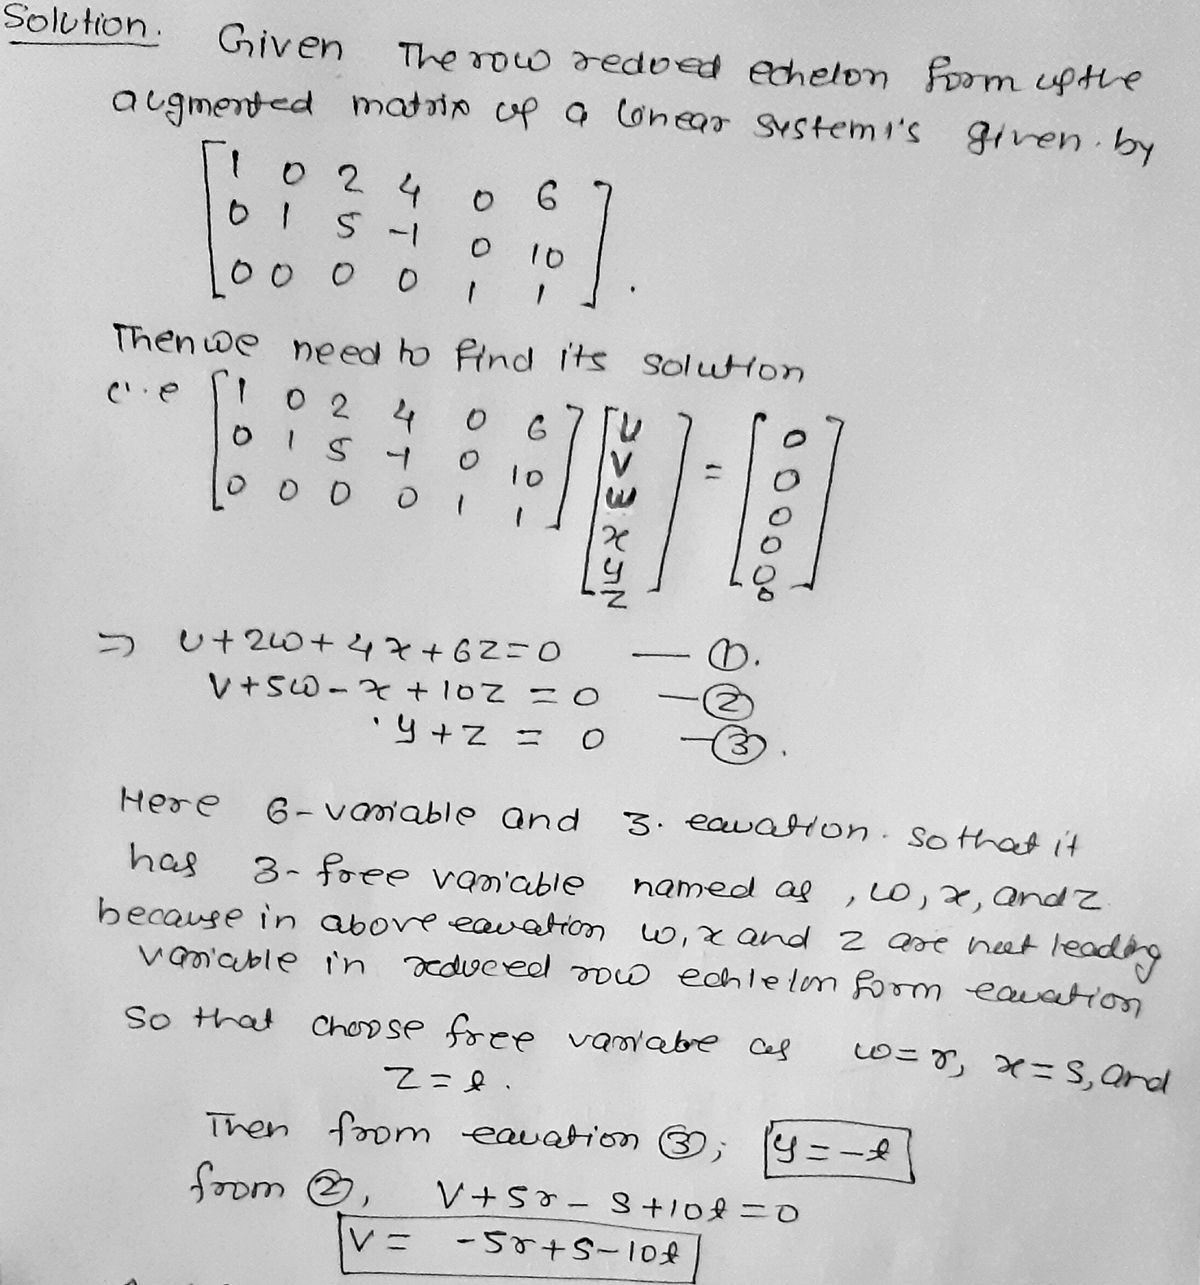 Solution. Given The row redved echelon form of the
augmented matrix of a linear system is given by
[1 0 2 4 0 6
0 1 5 -1 0 10
0 0 0 0 1 1].
Then we need to find its solution
i.e [1 0 2 4 0 6
0 1 5 -1 0 10
0 0 0 0 1 1] [u v w x y z] = [0 0 0 0 0 0]
⇒ u+2w+4x+6z=0 — ①.
v+5w-x+10z=0 — ②
y+z=0 — ③.
Here 6-variable and 3. equation. so that it
has 3-free variable named as , w, x, and z
because in above equation w, x and z are not leading
variable in reduceed row echlelon form equation
So that choose free variabe as w=r, x=s, and
z=l.
Then from equation ③; y=-l
from ②, v+5r-s+10l=0
v= -5r+s-10l